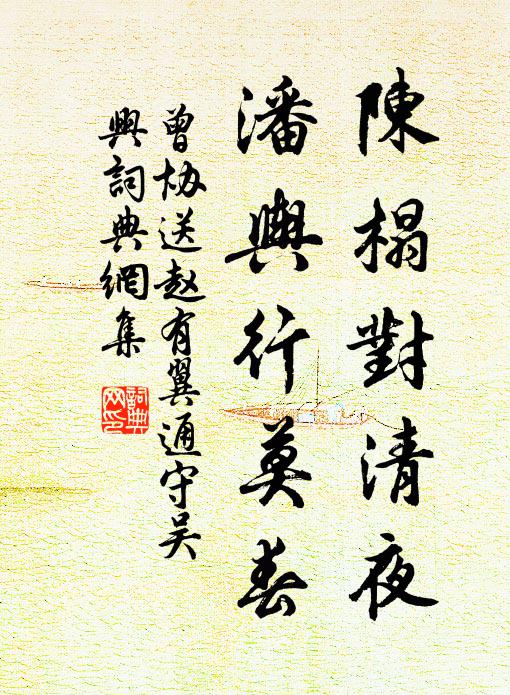 陳榻對清夜
潘輿行莫春
曾協送赵有翼通守吴
興詞典網集
詞典網印